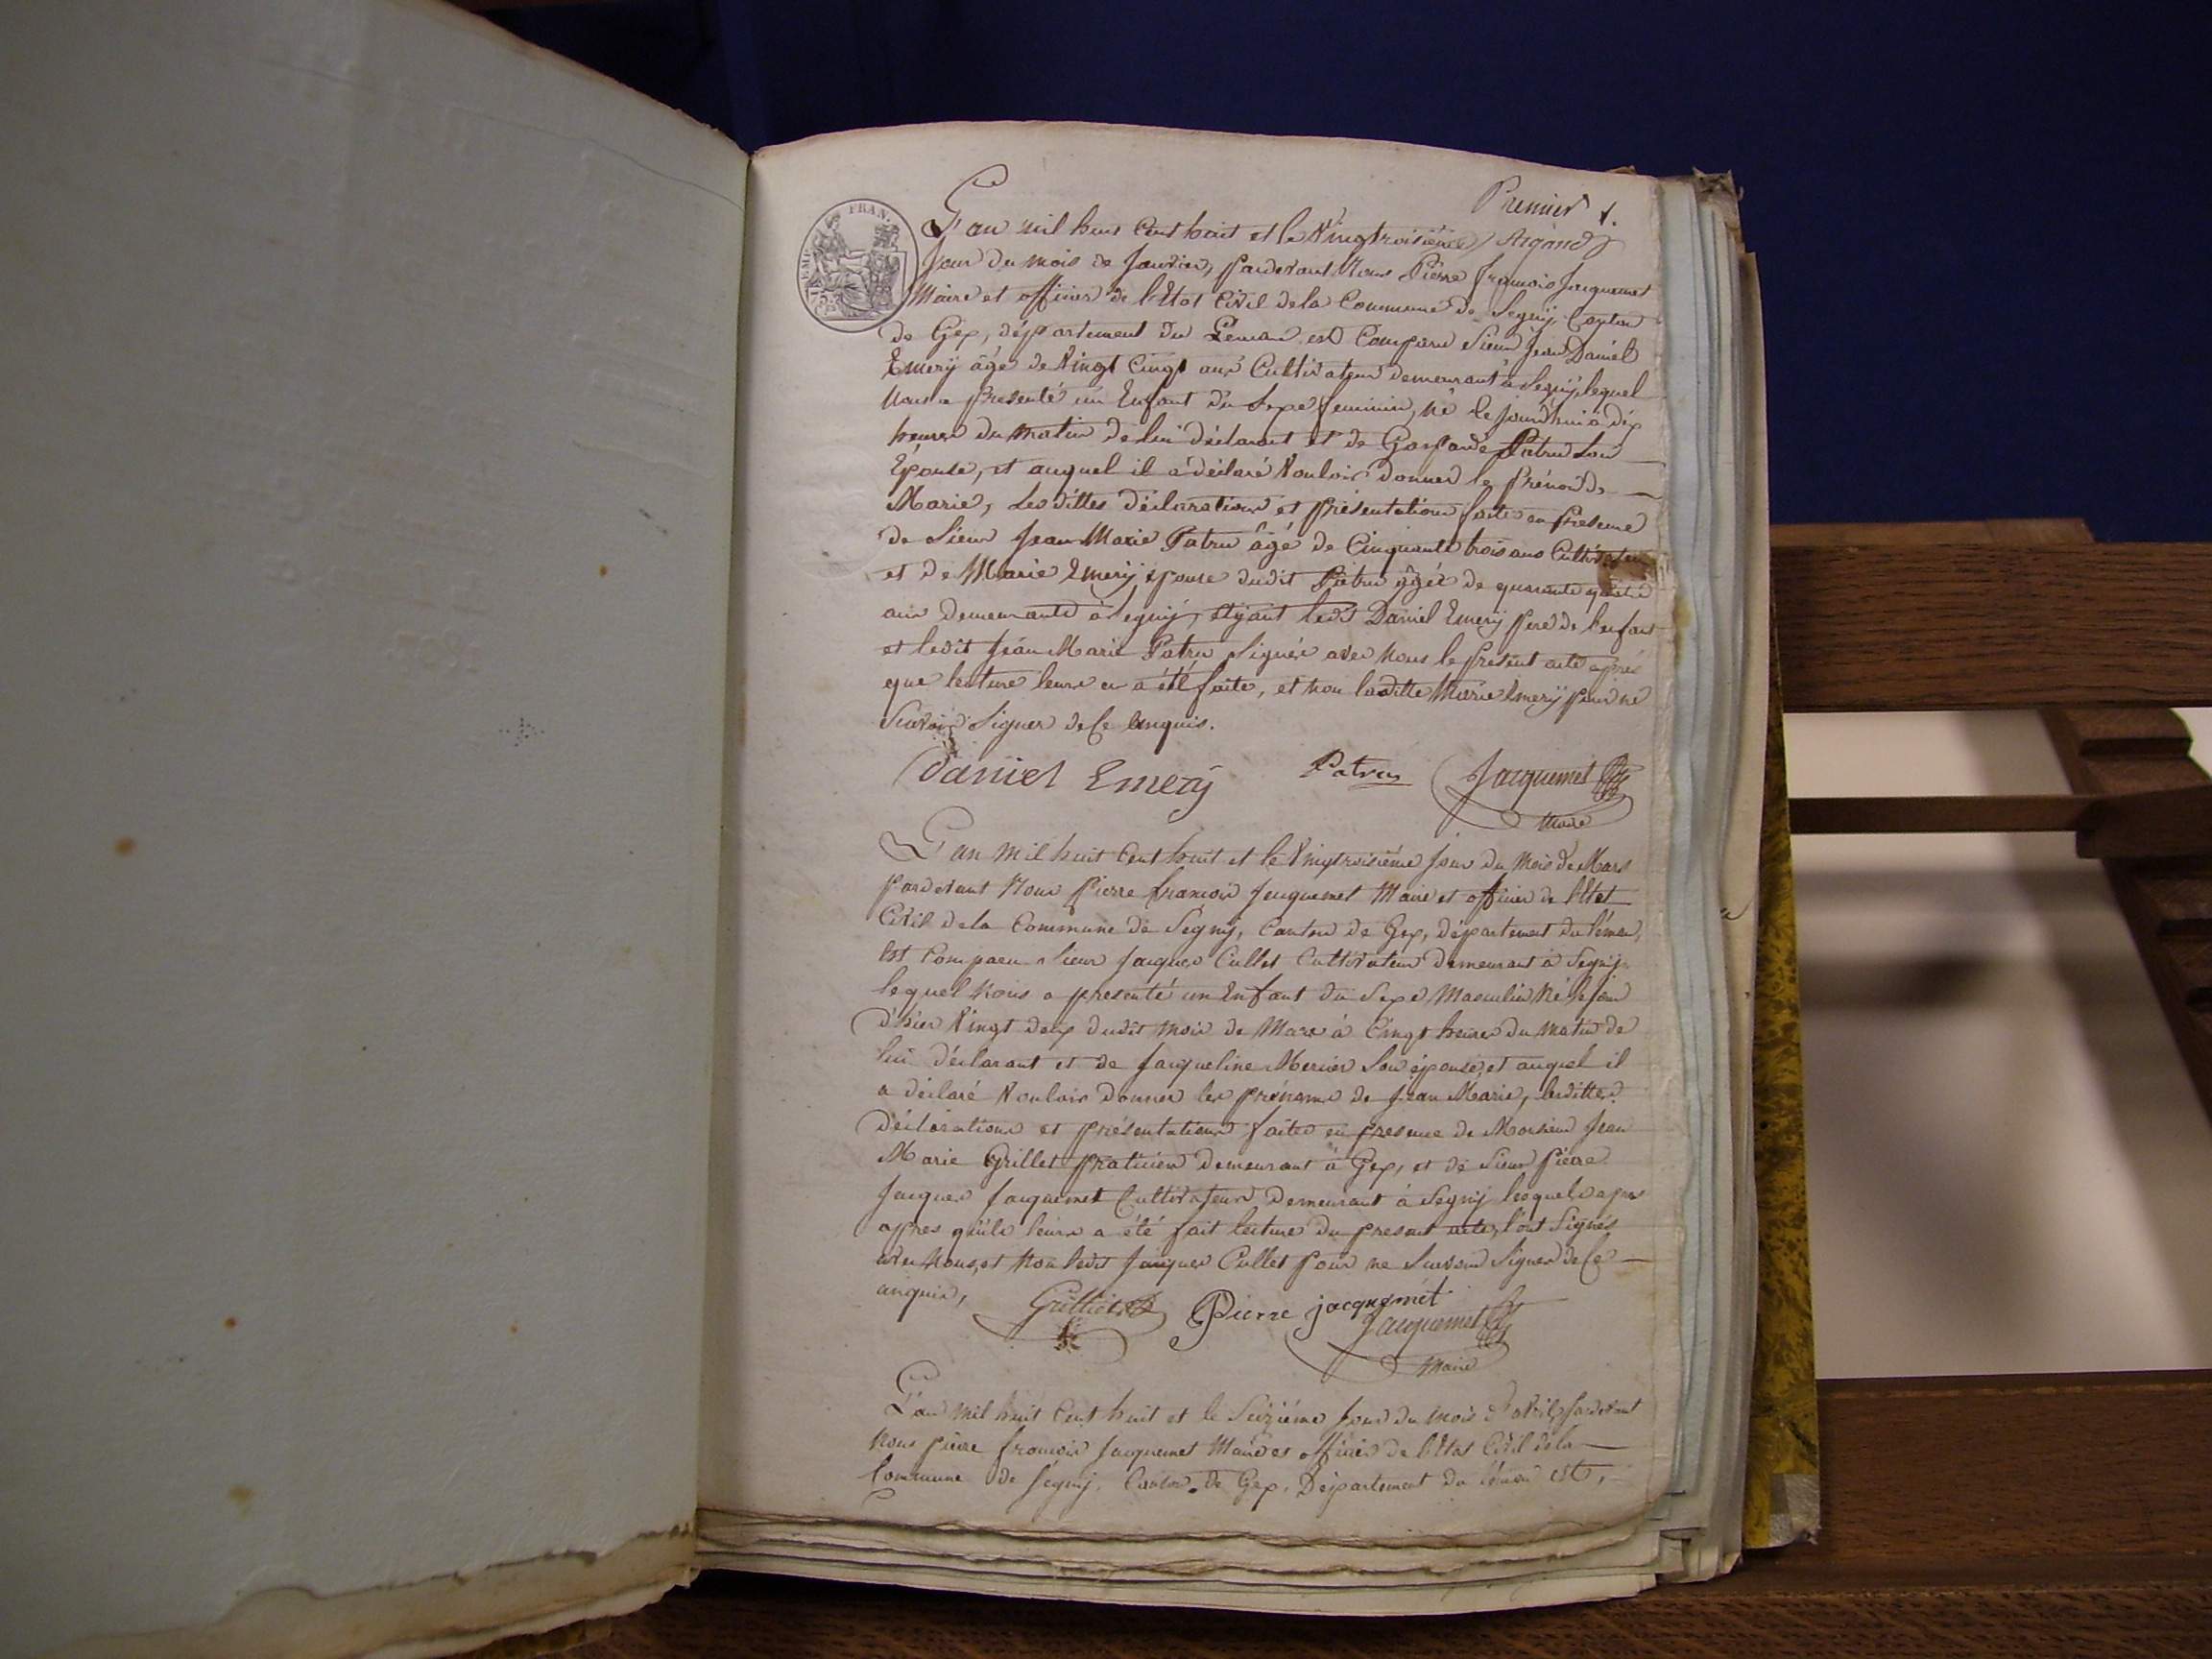 Premier 1.
EMP. FRAN.
L'an mil huit Cent huit et le Vingtroisieme Argand
Jour du mois de Janvier, pardevant Nous Pierre françois Jacquemet
Maire et officier de l'Etat Civil de la Commune de Segnÿ, Canton
de Gex, département du Leman est Comparu Sieur Jean Daniel
Emerÿ âgé de Vingt Cinqt ans Cultivateur demeurant à Segnÿ, lequel
Nous a présenté un Enfant du Sexe feminin, né le jourd'hui à dix
heures du matin de lui déclarant et de Gasparde Patru Son
Epouse, et auquel il a déclaré Vouloir donner le prénom de
Marie, Lesdittes déclaration et présentation faite en presence
de Sieur Jean Marie Patru âgé de Cinquante trois ans Cultivateur
et de Marie Emerÿ épouse dudit Patru âgée de quarante quatre
ans demeurants à Segnÿ, etÿant ledit Daniel Emerÿ pere de l'enfant
et ledit Jean Marie Patru Signés avec Nous le présent acte après
que lecture leurs en a été faite, et non laditte Marie Emerÿ pour ne
Scavoir Signer de Ce enquis.
Daniel Emerÿ Patru Jacquemet
Maire
L'an mil huit Cent huit et le Vingtroisième Jour du Mois de Mars
pardevant Nous Pierre francois Jacquemet Maire et officier de l'Etat
Civil de la Commune de Segnÿ, Canton de Gex, département du Léman,
Est Comparu Sieur Jacques Cullet Cultivateur demeurant à Segnÿ
lequel Nous a présenté un Enfant du Sexe Masculin Né le jour
d'hier Vingt deux dudit mois de Mars à Cinqt heures du matin de
lui déclarant et de Jacqueline Mercier Son épouse, et auquel il
a déclaré Vouloir donner les prénoms de Jean Marie, lesdittes
déclarations et présentations faites en presence de Monsieur Jean
Marie Grillet praticien demeurant à Gex, et de Sieur Pierre
Jacques Jacquemet Cultivateur demeurant à Segnÿ lesquels apres
apres qu'ile leurs a été fait lecture du present acte, l'ont Signés
avec Nous, et Non ledit Jacques Cullet pour ne Scavoir Signer de Ce
enquis, Grilliet Pierre jacquemét
Jacquemet
Maire
L'an mil huit Cent huit et le Seizième Jour du Mois d'Avril, pardevant
Nous Pierre francois Jacquemet Maire et officier de l'Etat Civil de la
Commune de Segnÿ, Canton de Gex, Département du Léman est,